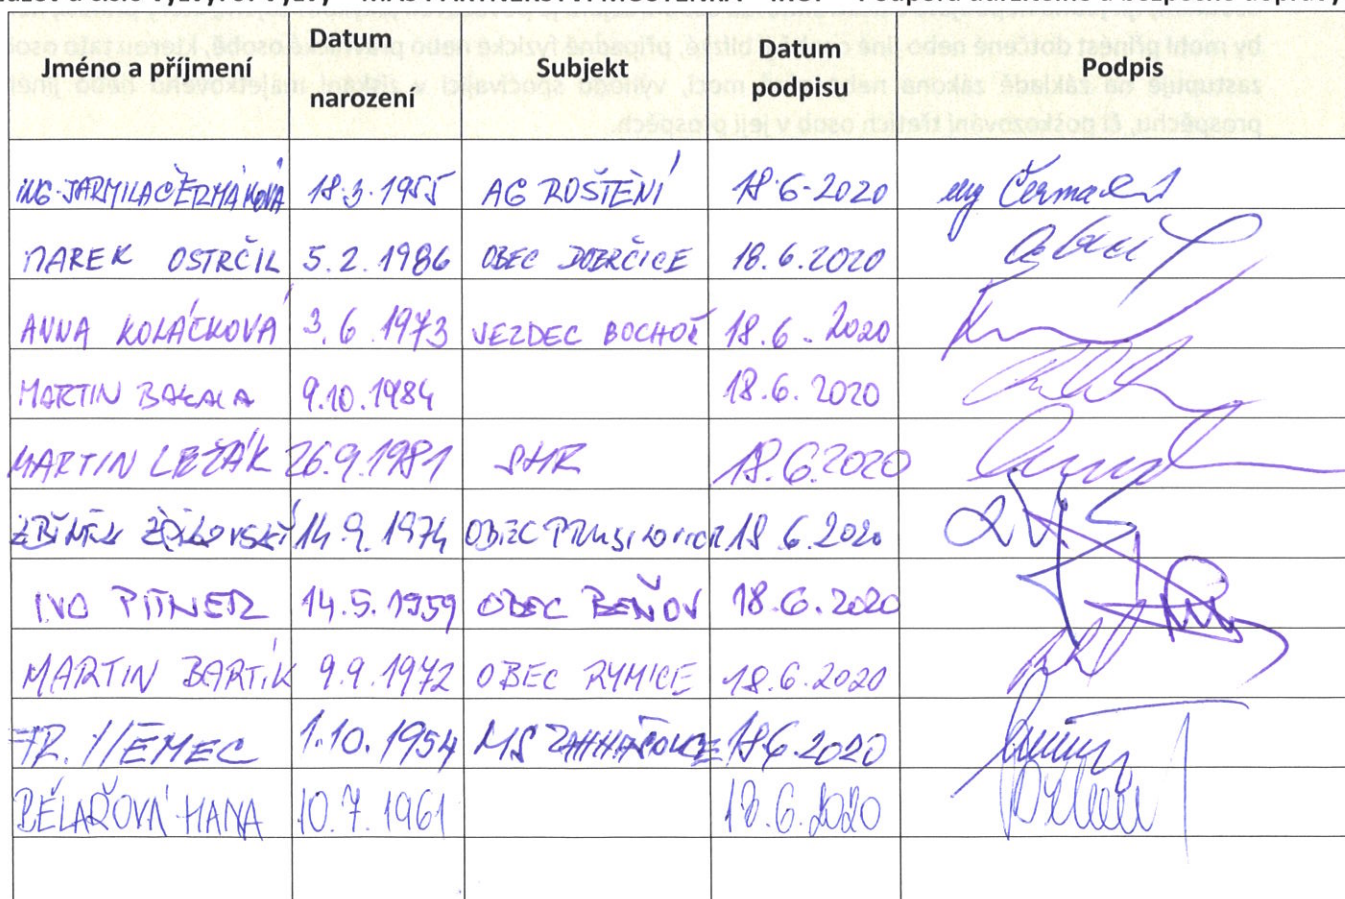 MAS PARTNERSTVÍ MOŠTĚNKA – IROP – Podpora udržitelné a bezpečné dopravy
Jméno a příjmení Datum narození Subjekt Datum podpisu Podpis
ING. JARMILA ČERMÁKOVÁ 18.3.1955 AG ROŠTĚNÍ 18.6.2020 ing Čermák
MAREK OSTRČIL 5.2.1986 OBEC DOBRČICE 18.6.2020
ANNA KOLÁČKOVÁ 3.6.1973 JEZDEC BOCHOŘ 18.6.2020
MARTIN BAKALA 9.10.1984 18.6.2020
MARTIN LEŽÁK 26.9.1981 SHR 18.6.2020
ZBYNĚK 14.9.1974 OBEC PRUSINOVICE 18.6.2020
IVO PITNER 14.5.1959 OBEC BEŇOV 18.6.2020
MARTIN BARTÍK 9.9.1972 OBEC RYMICE 18.6.2020
FR. NĚMEC 1.10.1954 MS ZAHNAŠOVICE 18.6.2020
BĚLAŘOVÁ HANA 10.7.1961 18.6.2020